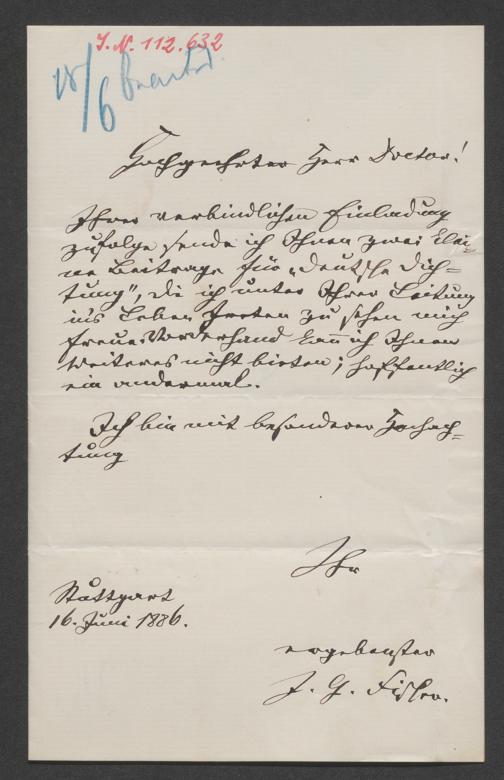 I. N. 112.632
18/6 Beantw
Hochgeehrter Herr Doctor!
Ihrer verbindlichen Einladung
zufolge sende ich Ihnen zwei klei-
ne Beitrage für „Deutsche Dich-
tung", die ich unter Ihrer Leitung
in's Leben treten zu sehen mich
freue. Vorderhand kann ich Ihnen
weiteres nicht bieten; hoffentlich
ein andermal.
Ich bin mit besonderer Hochach-
tung
Ihr
Stuttgart
16. Juni 1886.
ergebenster
J. G. Fischer.